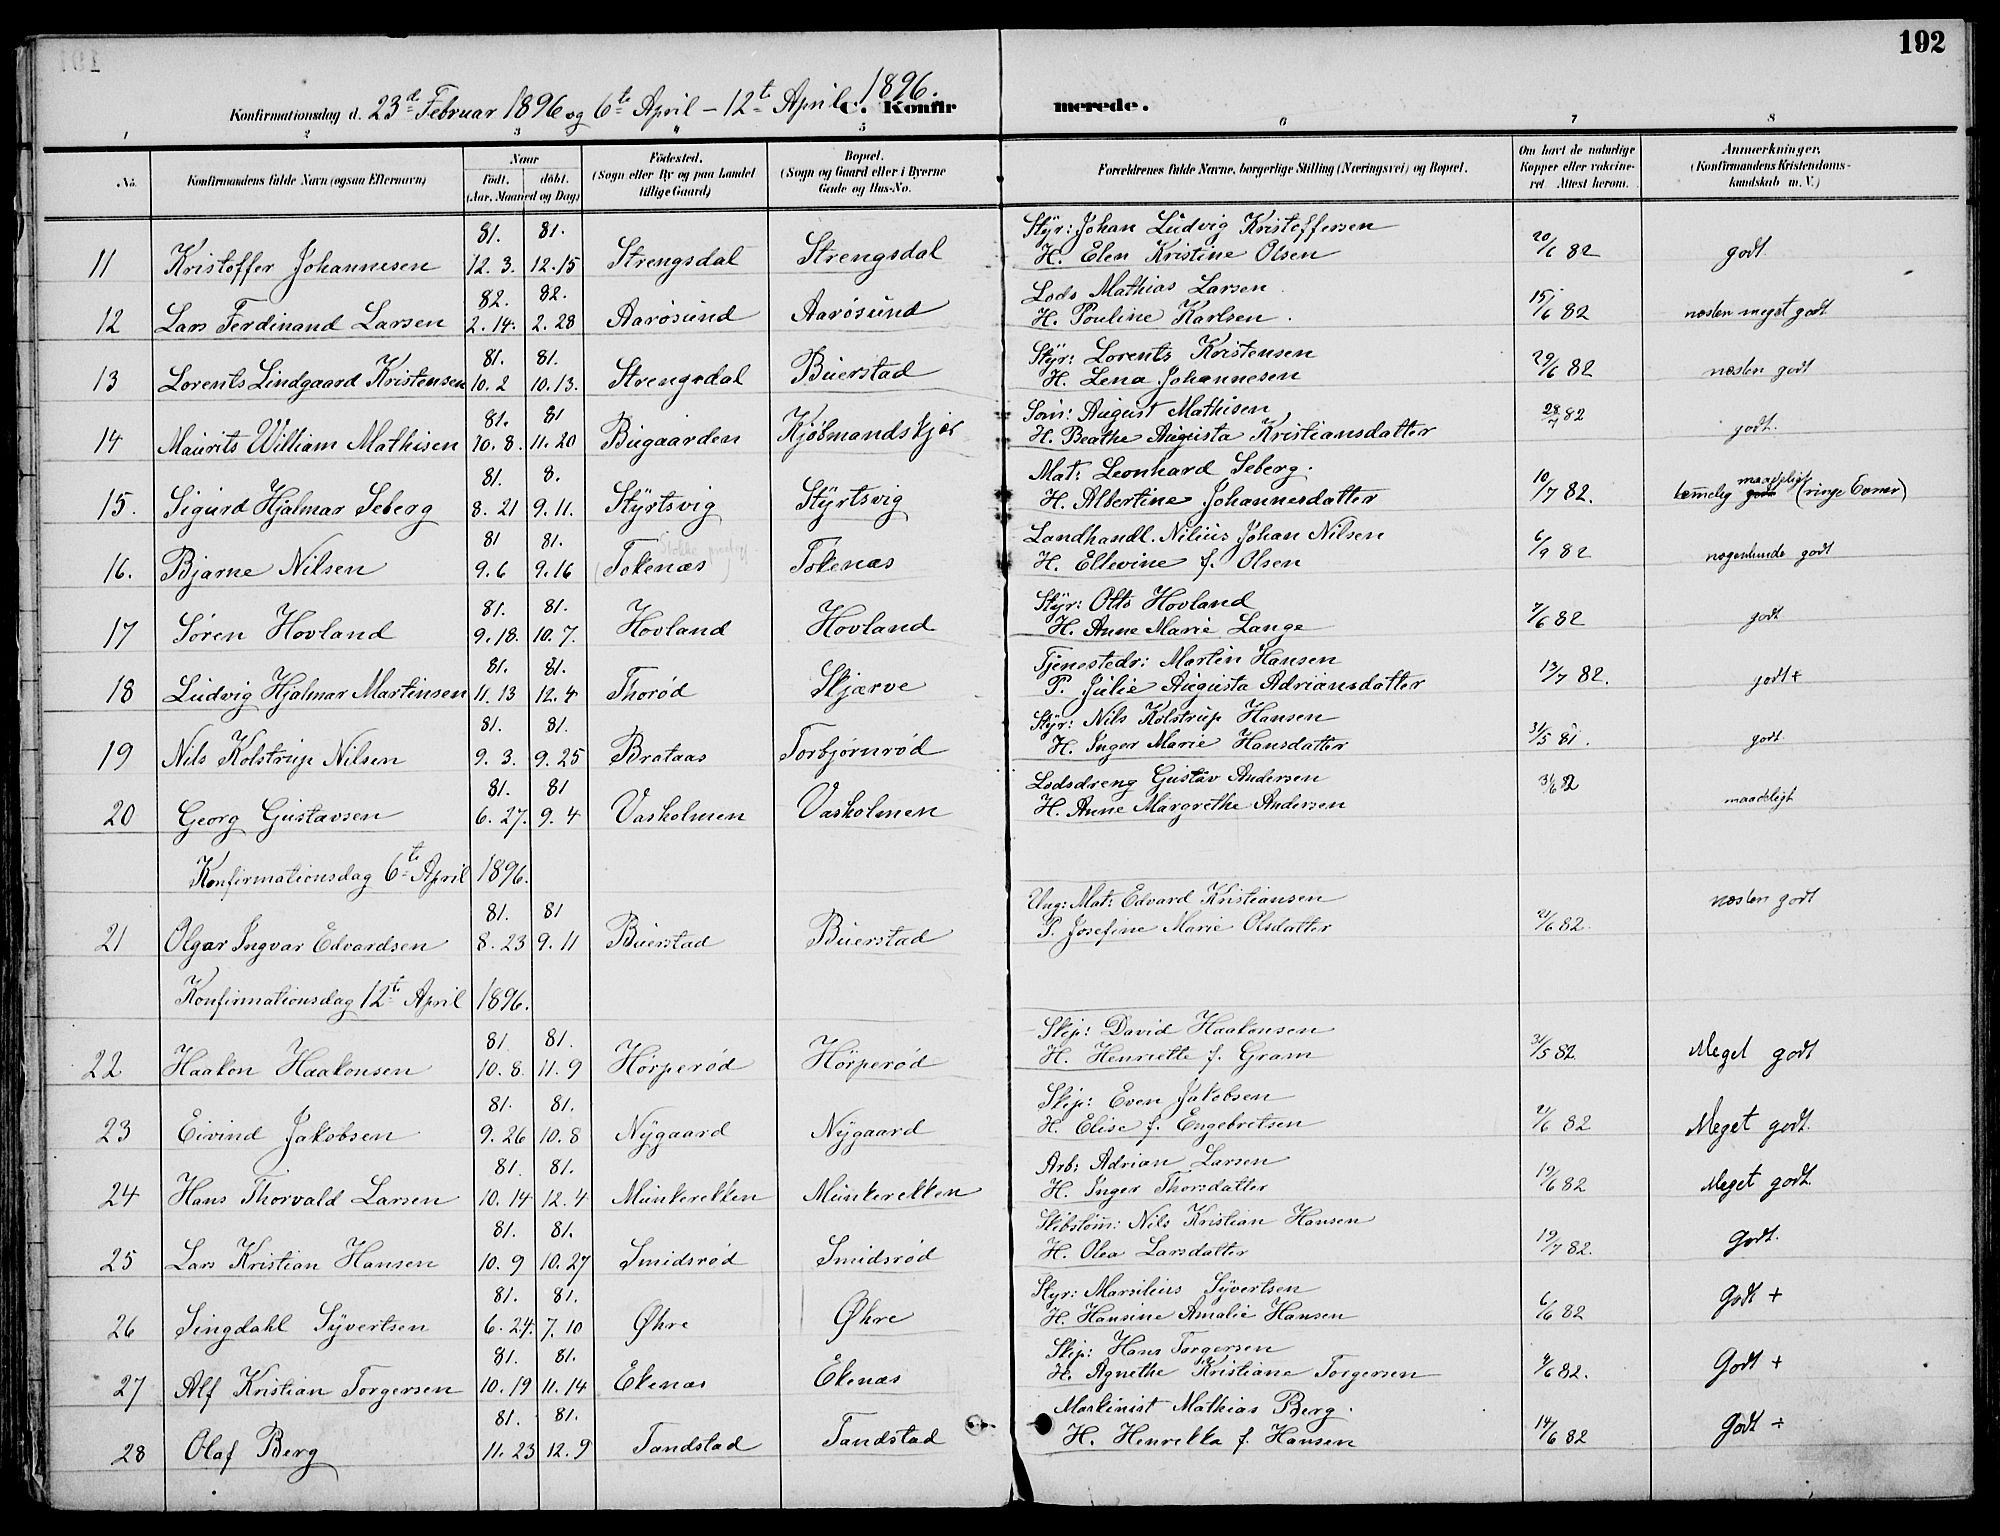 192
Konfirmationsdag d. 23d Februar 1896 og 6te April – 12te April 1896. C. Konfirmerede.
1 2 3 4 5 6 7 8
No. Konfirmandens fulde Navn (ogsaa Efternavn) Naar födt. döbt. (Aar, Maaned og Dag) Födested. (Sogn eller By og paa Landet tillige Gaard) Bopæl. (Sogn og Gaard eller i Byerne Gade og Hus-No. Forældrenes fulde Navne, borgerlige Stilling (Næringsvei) og Bopæl. Om havt de naturlige Kopper eller vakcineret Attest herom. Anmærkninger. (Konfirmandens Kristendomskundskab m. V.)
81. 81. Styr: Johan Ludvig Kristoffersen
11 Kristoffer Johannesen 12. 3. 12. 15 Strengsdal Strengsdal H. Elen Kristine Olsen 20/6 82 godt.
82. 82. Lods Mathias Larsen
12 Lars Ferdinand Larsen 2. 14. 2. 28 Aarøsund Aarøsund H. Pouline Karlsen. 15/6 82 næsten meget godt
81. 81. Styr: Lorents Kristensen
13 Lorents Lindgaard Kristensen 10. 2 10. 13. Strengsdal Buerstad H. Lena Johannesen 29/6 82 næsten godt
81. 81 Søm: August Mathisen
14 Maurits William Mathisen 10. 8. 11. 20 Bugaarden Kjøbmandskjær H. Beathe Augusta Kristiansdatter 28/7 82 godt.
81. 8. Mat: Leonhard Seberg.
15. Sigurd Hjalmar Seberg 8. 21 9. 11. Styrtsvig Styrtsvig H. Albertine Johannesdatter 10/7 82. temmelig maadeligt (ringe Evner)
81 81. Landhandl. Nilius Johan Nilsen
16. Bjarne Nilsen 9. 6 9. 16 (Tokenæs) Tokenæs H. Ellevine f. Olsen 6/9 82 nogenlunde godt
81. 81. Styr: Otto Hovland
17 Søren Hovland 9. 18. 10. 7. Hovland Hovland H. Anne Marie Lange 7/6 82 godt
81. 81. Tjenestedr: Martin Hansen
18 Ludvig Hjalmar Martinsen 11. 13 12. 4 Thorød Skjærve P. Julie Augusta Adriansdatter 13/7 82. godt +
81. 81. Styr: Nils Kolstrup Hansen
19 Nils Kolstrup Nilsen 9. 3. 9. 25 Brataas Torbjørnrød H. Inger Marie Hansdatter 31/5 81. godt
81. 81 Lodsdreng Gustav Andersen
20 Georg Gustavsen 6. 27. 9. 4 Vasholmen Vasholmen H. Anne Margrethe Andersen maadeligt
Konfirmationsdag 6te April 1896.
81. 81 Ung: Mat: Edvard Kristiansen næsten godt
21 Olgar Ingvar Edvardsen 8. 23 9. 11 Buerstad Buerstad P. Josefine Marie Olsdatter 21/6 82.
Konfirmationsdag 12te April 1896.
81 81. Skip: David Haakonsen
22 Haakon Haakonsen 10. 8. 11. 9 Hørperød Hørperød H. Henriette f. Gram 31/5 82 Meget godt
81. 81. Skip: Even Jakobsen
23 Eivind Jakobsen 9. 26 10. 8 Nygaard Nygaard H. Elise f. Engebretsen 21/6 82 Meget godt.
81. 81. Arb: Adrian Larsen
24 Hans Thorvald Larsen 10. 14 12. 4 Munkerekken Munkerekken H. Inger Thorsdatter 19/6 82 Meget godt.
81. 81. Skibstøm: Nils Kristian Hansen
25 Lars Kristian Hansen 10. 9 10. 27 Smidsrød Smidsrød H. Olea Larsdatter 19/7 82. Godt.
81. 81. Styr: Marsilius Syvertsen
26 Singdahl Syvertsen 6. 24. 7. 10 Øhre Øhre H. Hansine Amalie Hansen 6/6 82 Godt +
81. 81. Skip: Hans Torgersen
27 Alf Kristian Torgersen 10. 19 11. 14 Ekenæs Ekenæs H. Agnethe Kristiane Torgersen 9/6 82. Godt +
81. 81. Maskinist Mathias Berg.
28 Olaf Berg 11. 23 12. 9 Tandstad Tandstad H. Henrikka f. Hansen 14/6 82 Godt ÷